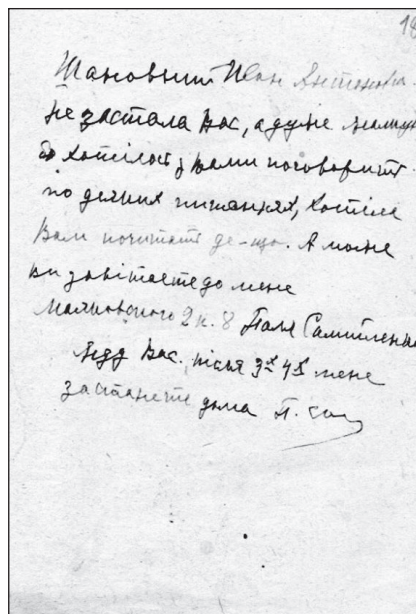 18
Шановний Иван Антонович.
Не застала Вас, а дуже жалкую
бо хотілося з вами поговорить
по деяких питаннях, хотіла
Вам почитать де-що. А може
ви завітаєте до мене
Маяковского 2 к. 8 Поля Самійленко
Жду Вас. після 3х 4х мене
застанете дома П. Сам